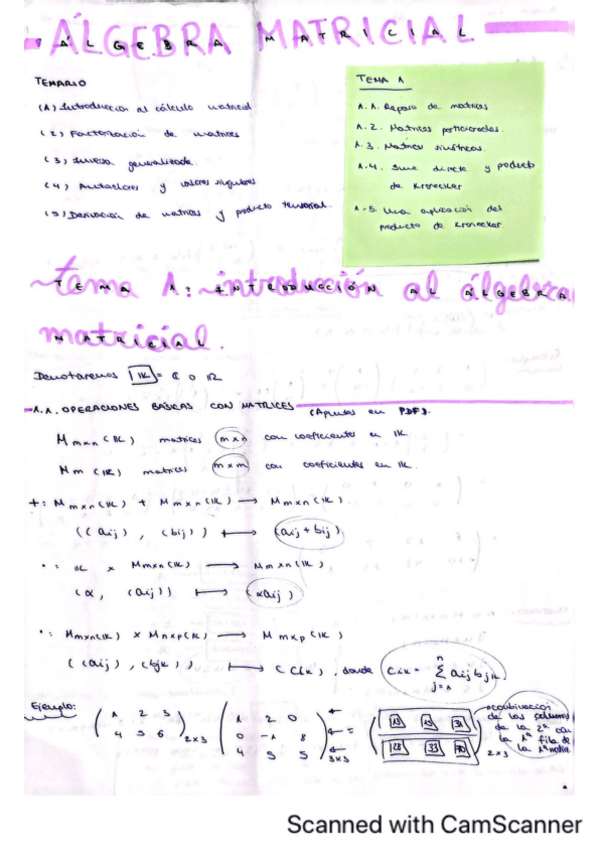 ÁLGEBRA MATRICIAL
TEMARIO
(1) Introducción al cálculo matricial
(2) Factorización de matrices
(3) Inversa generalizada.
(4) Autovalores y valores singulares
(5) Derivación de matrices y producto tensorial.
TEMA 1
1.1. Repaso de matrices
1.2. Matrices particionadas.
1.3. Matrices simétricas.
1.4. Suma directa y producto
de Kronecker
1.5. Una aplicación del
producto de Kronecker.
tema 1: introducción al álgebra
matricial.
Denotaremos IK = C o IR
1.1. OPERACIONES BÁSICAS CON MATRICES (Apuntes en PDF).
Mmxn (IK) matrices mxn con coeficientes en IK
Mm (IK) matrices mxm con coeficientes en IK.
+: Mmxn(IK) + Mmxn(IK) ⟶ Mmxn(IK)
((aij), (bij)) ⟼ (aij + bij)
· : IK x Mmxn(IK) ⟶ Mmxn(IK)
(α, (aij)) ⟼ (αaij)
· : Mmxn(IK) x Mnxp(IK) ⟶ Mmxp(IK)
((aij), (bjk)) ⟼ (Cik), donde Cik = Σ aij bjk
n
j=1
Ejemplo:
( 1 2 3
4 5 6 ) 2x3
( 1 2 0
0 -1 8
4 5 5 ) 3x3
= ( 13 15 31
28 33 70 ) 2x3
de las
de la 2ª con
la 1ª fila de
la 1ª matriz
Scanned with CamScanner